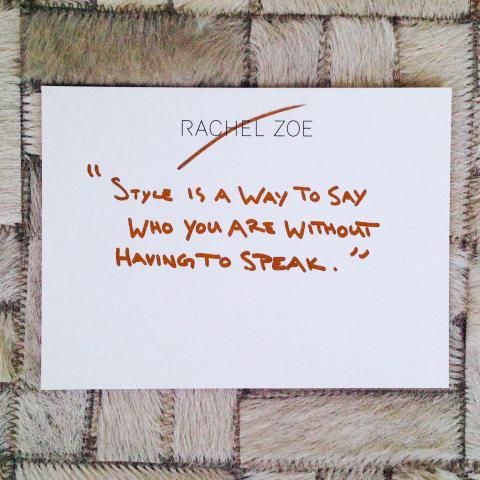 RACHEL ZOE
"STYLE IS A WAY TO SAY
WHO YOU ARE WITHOUT
HAVING TO SPEAK."